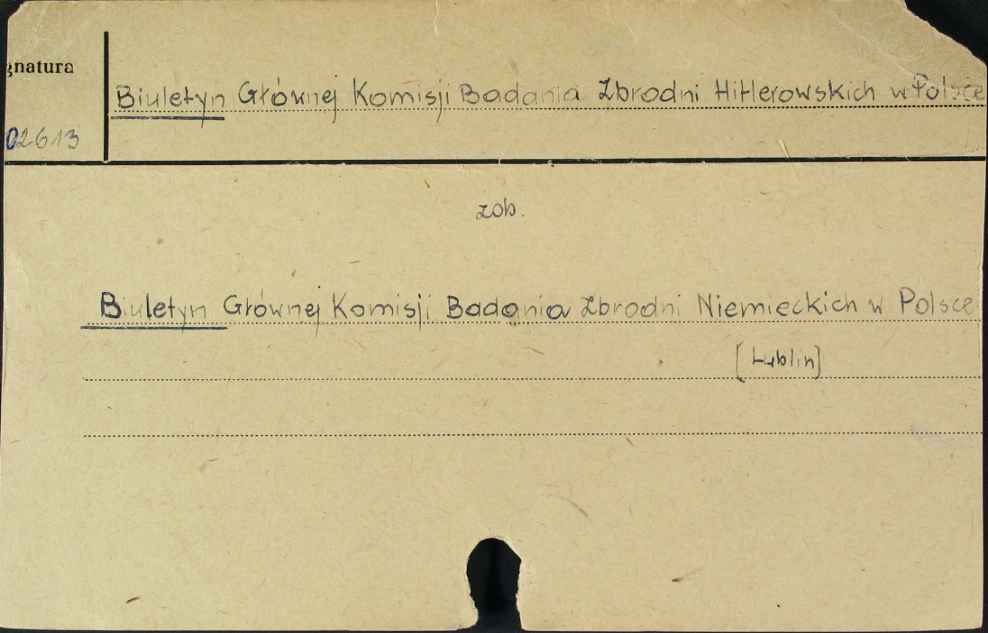 gnatura
Biuletyn Głównej Komisji Badania Zbrodni Hitlerowskich w Polsce
02613
zob.
Biuletyn Głównej Komisji Badania Zbrodni Niemieckich w Polsce
[Lublin]